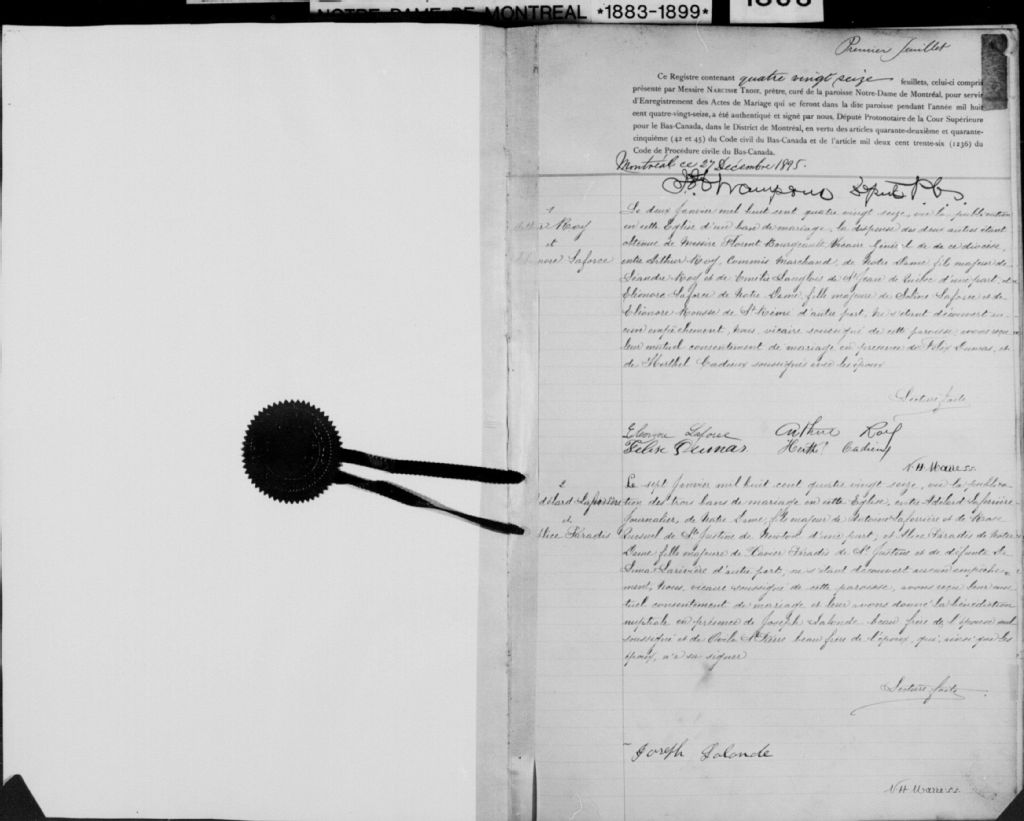 NOTRE-DAME DE MONTREAL *1883-1899*
Premier feuillet
Ce Registre contenant quatre vingt seize feuillets, celui-ci compris
présenté par Messire NARCISSE TROIE, prêtre, curé de la paroisse Notre-Dame de Montréal, pour servir
d'Enregistrement des Actes de Mariage qui se feront dans la dite paroisse pendant l'année mil huit
cent quatre-vingt-seize, a été authentiqué et signé par nous, Député Protonotaire de la Cour Supérieure
pour le Bas-Canada, dans le District de Montréal, en vertu des articles quarante-deuxième et quarante-
cinquième (42 et 45) du Code civil du Bas-Canada et de l'article mil deux cent trente-six (1236) du
Code de Procédure civile du Bas-Canada.
Montréal ce 27 Décembre 1895.
Député P.C.S.
1
Roy
et
Laforce
Le deux Janvier mil huit cent quatre vingt seize, vu la publication
en cette Eglise d'un ban de mariage, la dispense des deux autres étant
obtenue de Messire Florent Bourgeault Vicaire Général de ce diocèse,
entre Arthur Roy, Commis Marchand, de Notre Dame, fils majeur de
Léandre Roy et de Emélie Langlois de St Jean de Québec d'une part, et
Eléonore Laforce de Notre Dame, fille majeure de Laforce et de
Eléonore de St Rémi d'autre part, ne s'étant découvert au-
cun empêchement, Nous, vicaire soussigné de cette paroisse, avons reçu
leur mutuel consentement de mariage en présence de Félix Dumas, et
de Herthel Cadieux soussignés avec les époux
Lecture faite
Eléonore Laforce Arthur Roy
Félix Dumas Cadieux
N H Marre
2
Adélard Laferrière
et
Alice Paradis
Le sept Janvier mil huit cent quatre vingt seize, vu la publica-
tion des trois bans de mariage en cette Eglise, entre Adélard Laferrière
Journalier, de Notre Dame, fils majeur de Antoine Laferrière et de Rose
Quesnel de St Justine de Newton d'une part, et Alice Paradis de Notre
Dame, fille majeure de Xavier Paradis de St Justine et de défunte
Larivière d'autre part, ne s'étant découvert aucun empêche-
ment, Nous, vicaire soussigné de cette paroisse, avons reçu leur mu-
tuel consentement de mariage et leur avons donné la bénédiction
nuptiale en présence de Joseph Lalonde beau frère de l'épouse
soussigné et de Ovile St Pierre beau frère de l'époux, qui, ainsi que les
époux, n'a su signer
Lecture faite
Joseph Lalonde
N H Marre